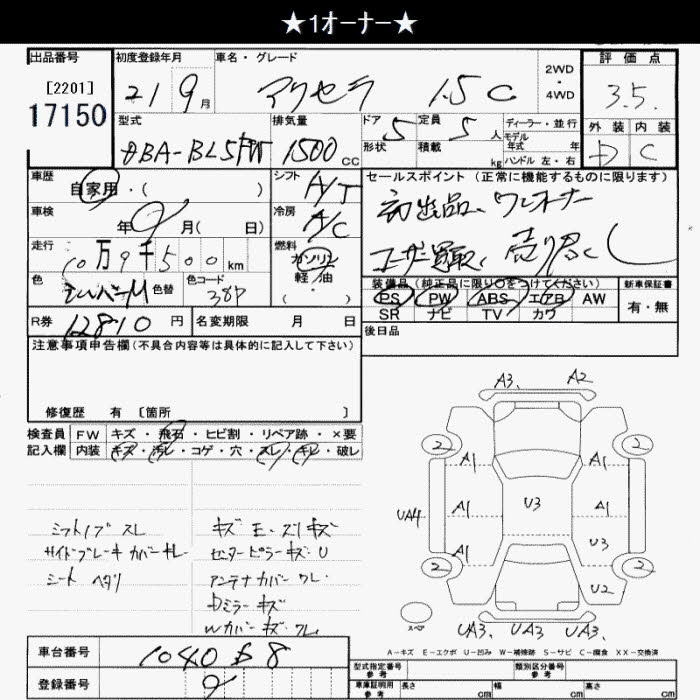 ★1オーナー★
出品番号
[2201]
17150
初度登録年月
21 9月
車名・グレード
アクセラ 1.5 C
2WD
・
4WD
評価点
3.5.
外装 内装
D C
型式
DBA-BL5FW
排気量
1500cc
ドア
5
形状
定員
5人
積載 kg
ディーラー・並行
モデル
年式 年
ハンドル 左・右
車歴
自家用・( )
車検
年 月( 日)
走行
10万9千500km
色
色替
色コード
38P
( )
R券
12810円
名変期限 月 日
シフト
A/T
冷房
A/C
燃料
ガソリン
軽・油
セールスポイント(正常に機能するものに限ります)
初出品、ワンオーナー
ユーザー買取、売り尽くし
装備品(純正品に限り○をつけてください)
PS PW ABS エアB AW
SR ナビ TV カワ
新車保証書
有・無
後日品
注意事項申告欄(不具合内容等は具体的に記入して下さい)
修復歴 有 [箇所 ]
検査員
記入欄
FW キズ・飛石・ヒビ割・リペア跡・×要
内装 キズ・汚レ・コゲ・穴・スレ・キレ・破レ
シフトノブ スレ
サイドブレーキ カバー キレ
シート ヘタリ
キズ E・スリキズ
センターピラー キズ U
アンテナカバー ワレ
Dミラー キズ
Wカバー キズ・ワレ
A3、 A2
2 2
A1 A1
UA4 A1 U3 A1
A1 U3
2 2
U2
スペア
UA3、 UA3 UA3、
A-キズ E-エクボ U-凹み W-補修跡 S-サビ C-腐食 XX-交換済
車台番号
104058
登録番号
型式指定番号
参考
類別区分番号
参考
車庫証明用
参考
長さ cm
幅 cm
高さ cm